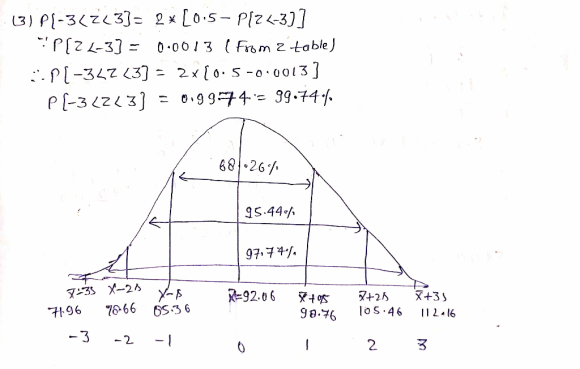 (3) P[-3<Z<3] = 2×[0.5-P[Z<-3]]
∵ P[Z<-3] = 0.0013 (From z table)
∴ P[-3<Z<3] = 2×[0.5-0.0013]
P[-3<Z<3] = 0.9974 = 99.74%
68.26%
95.44%
97.74%
x̄-3s x-2s x-s x̄=92.06 x̄+1s x̄+2s x̄+3s
71.96 78.66 85.36 98.76 105.46 112.16
-3 -2 -1 0 1 2 3